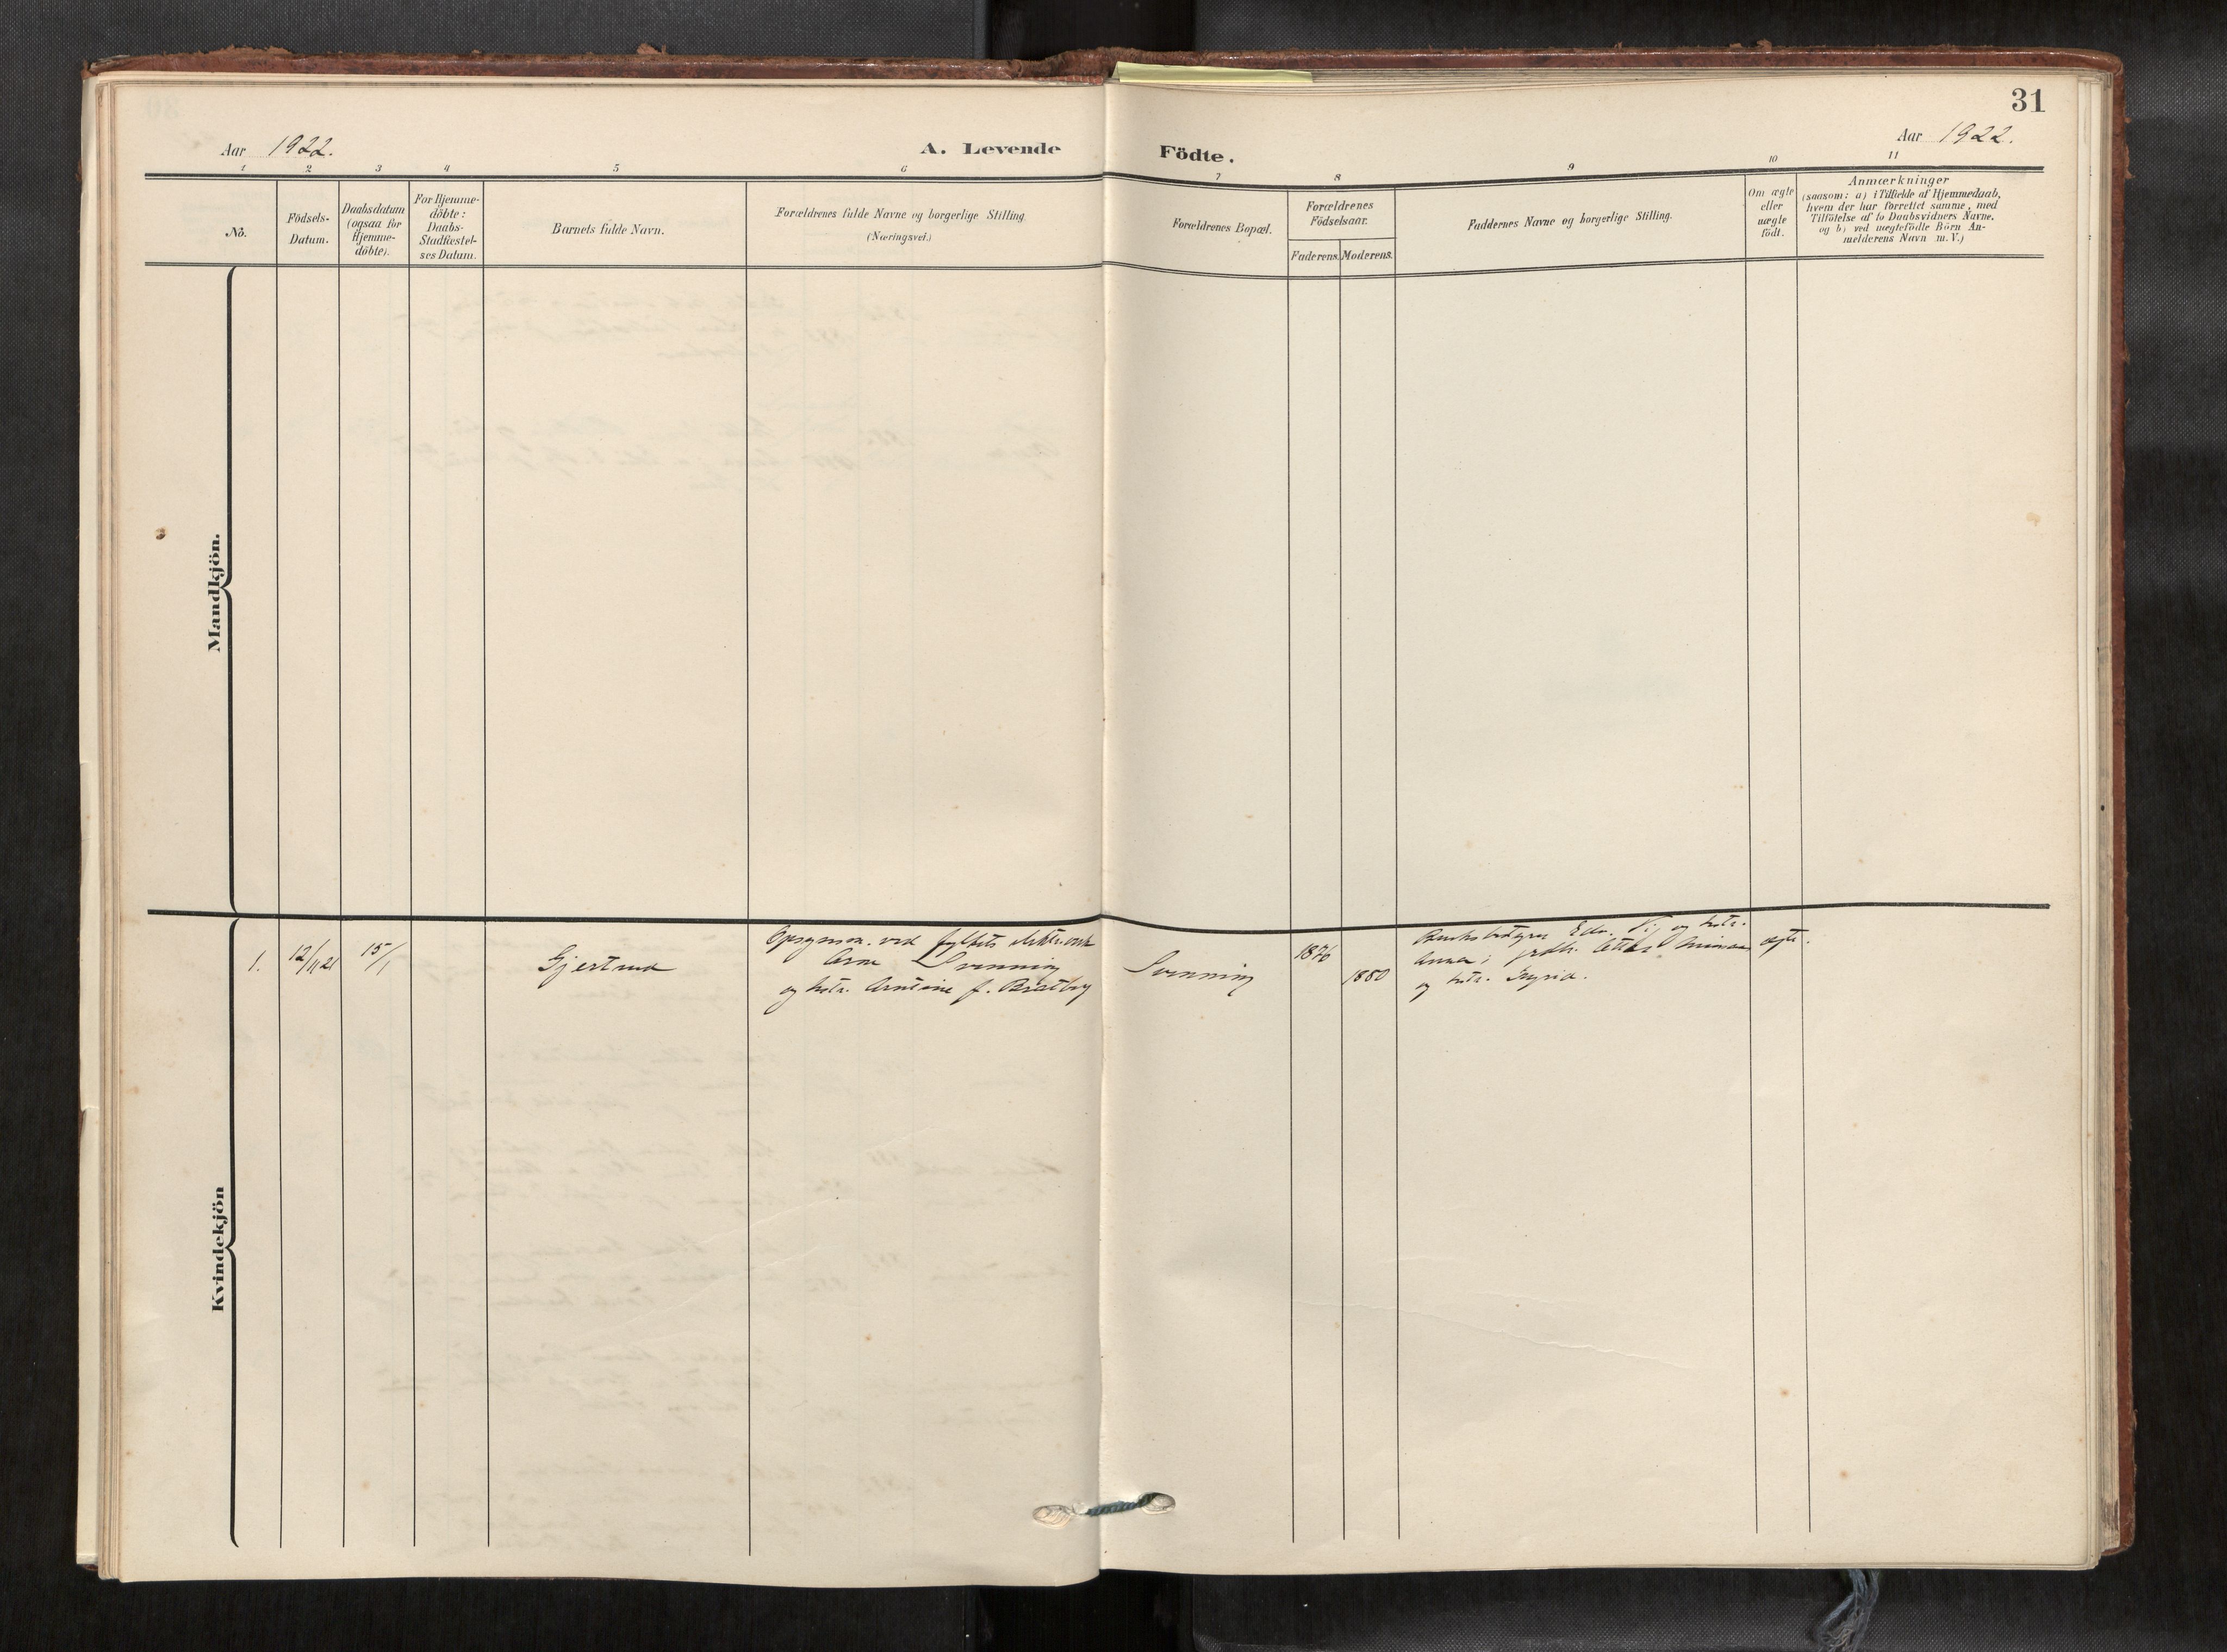 31
Aar 1922.
A. Levende Födte.
Aar 1922.
1 2 3 4 5 6 7 8 9 10 11
No.
Födsels-
Datum.
Daabsdatum
(ogsaa for
Hjemme-
döbte).
For Hjemme-
döbte:
Daabs-
Stadfæstel-
ses Datum.
Barnets fulde Navn.
Forældrenes fulde Navne og borgerlige Stilling.
(Næringsvei.)
Forældrenes Bopæl.
Forældrenes
Födselsaar.
Faderens. Moderens.
Faddernes Navne og borgerlige Stilling.
Om ægte
eller
uægte
født.
Anmærkninger
(saasom: a) i Tilfælde af Hjemmedaab,
hvem der har forrettet samme, med
Tilføielse af to Daabsvidners Navne.
og b) ved uægtefödte Börn An-
melderens Navn m. V.)
Mandkjön.
Kvindekjön
1.
12/11 21
15/1
Gjertrud
Opsynsm. ved fylkets
Arne Svenning
og hstr. Arntine f. Bratby
Svenning
1876
1880
og hstr.
Anna;
og hstr. Ingrid.
ægte.